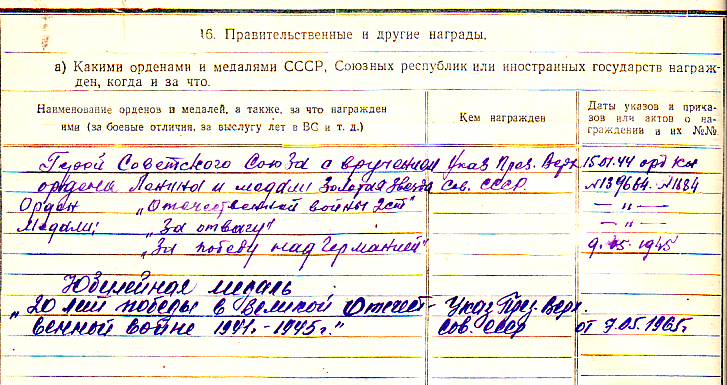 16. Правительственные и другие награды.
а) Какими орденами и медалями СССР, Союзных республик или иностранных государств награж-
ден, когда и за что.
Наименование орденов и медалей, а также, за что награжден
ими (за боевые отличия, за выслугу лет в ВС и т. д.)
Кем награжден
Даты указов и прика-
зов или актов о на-
граждении и их №№
Герой Советского Союза с вручением Указ През. Верх. 15.01.44 орд Кн
ордена Ленина и медали Золотая Звезда Сов. СССР. №139664. №1684
Орден „Отечественной войны 2ст" — „ —
Медали: „За отвагу" — „ —
„За победу над Германией" 9.05.1945
Юбилейная медаль
„20 лет победы в Великой Отечест- Указ През. Верх.
венной войне 1941г.-1945г." Сов. СССР от 7.05.1965г